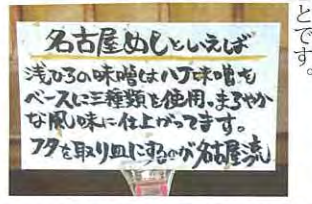 名古屋めしといえば
浅ひろの味噌は八丁味噌を
ベースに三種類を使用。まろやか
な風味に仕上がってます。
フタを取り皿にするのが名古屋流
とです。